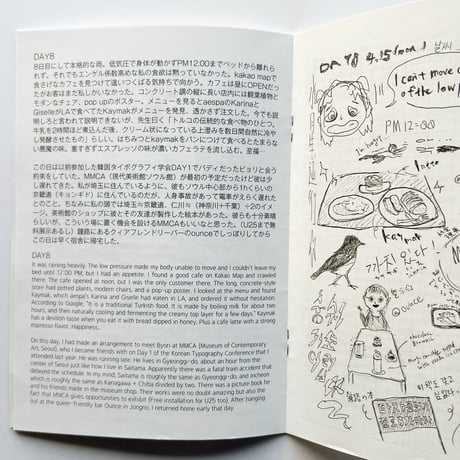 DAY8
8日目にして本格的な雨。低気圧で身体が動かずPM12:00までベッドから離れら
れず。それでもエンゲル係数高めな私の食欲は黙っていなかった。kakao mapで
良さげなカフェを見つけて這いつくばる気持ちで向かう。カフェは昼にOPENだっ
たがお客はまだ私しかいなかった。コンクリート調の縦に長い店内には観葉植物と
モダンなチェア、pop upのポスター。メニューを見るとaespaのKarinaと
Giselleが食べてたKaymakがメニューを発見、透かさず注文した。今でも説
明しろと言われて説明できないが、先生曰く「トルコの伝統的な食べ物のひとつ。
牛乳を2時間ほど煮込んだ後、クリーム状になっている上澄みを数日間自然に冷や
し発酵させたもの」らしい。はちみつとkaymakをパンにつけて食べるとたまらな
い悪魔の味。重すぎずエスプレッソの味が濃いカフェラテを流し込む、至福…
この日は以前参加した韓国タイポグラフィ学会DAY1でバディだったビョリと会う
約束をしていた。MMCA（現代美術館ソウル館）が最初の予定だったけど彼は少
し遅れてきた。私が埼玉に住んでいるように、彼もソウル中心部から1hくらいの
京畿道（キョンギド）に住んでいるのだが、人身事故があって電車がえらく遅れた
とのこと。ちなみに私の頭では埼玉≒京畿道、仁川≒（神奈川+千葉）÷2のイメ
ージ。美術館のショップに彼とその友達が製作した絵本があった。彼らも十分素晴
らしいが、こういう場に置く機会を設けるMMCAもいいなと思った。（U25まで無
料展示あるし）鍾路にあるクィアフレンドリーバーのounceでしっぽりしてから
この日は早く宿舎に帰宅した。
DAY8
It was raining heavily. The low pressure made my body unable to move and I couldn't leave my
bed until 12:00 PM, but I had an appetite. I found a good cafe on Kakao Map and crawled
there. The cafe opened at noon, but I was the only customer there. The long, concrete-style
store had potted plants, modern chairs, and a pop-up poster. I looked at the menu and found
Kaymak, which aespa's Karina and Giselle had eaten in LA, and ordered it without hesitation.
According to Google, "It is a traditional Turkish food, it is made by boiling milk for about two
hours, and then naturally cooling and fermenting the creamy top layer for a few days." Kaymak
has a devilish taste when you eat it with bread dipped in honey. Plus a cafe latte with a strong
espresso flavor. Happiness...
On this day, I had made an arrangement to meet Byori at MMCA (Museum of Contemporary
Art, Seoul), who I became friends with on Day 1 of the Korean Typography Conference that I
attended last year. He was running late. He lives in Gyeonggi-do, about an hour from the
center of Seoul just like how I live in Saitama. Apparently there was a fatal train accident that
delayed the schedule. In my mind, Saitama is roughly the same as Gyeonggi-do, and incheon
which is roughly the same as Kanagawa + Chiba divided by two. There was a picture book he
and his friends made in the museum shop. Their works were no doubt amazing but also the
fact that MMCA gives opportunities to exhibit. (Free installation for U25 too). After hanging
out at the queer-friendly bar Ounce in Jongno, I returned home early that day.
DAY8 4.15(mon.) 날씨
I can't move
of the low p
PM 12:00
latte
Kaymak
까치 있다